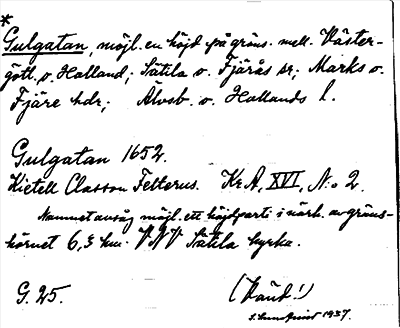 *
Gulgatan, möjl. en höjd på gräns. mell. Väster-
götl. o. Halland; Sätila o. Fjärås sr; Marks o.
Fjäre hdr; Älvsb. o. Hallands l.
Gulgatan 1652.
Kietell Classon Felterus. Kr A, XVI, N:o 2.
Namnet avsåg möjl. ett höjdparti i närh. av gräns-
hörnet 6,3 km. VNV Sätila kyrka.
G. 25. (Vänd!)
1937.